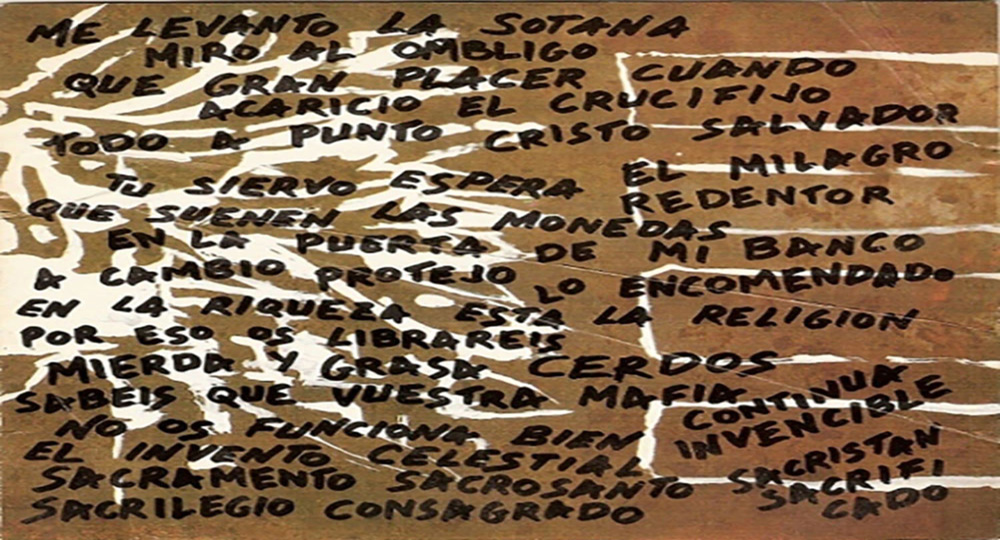 ME LEVANTO LA SOTANA
MIRO AL OMBLIGO
QUE GRAN PLACER CUANDO
ACARICIO EL CRUCIFIJO
TODO A PUNTO CRISTO SALVADOR
TU SIERVO ESPERA EL MILAGRO
REDENTOR
QUE SUENEN LAS MONEDAS
EN LA PUERTA DE MI BANCO
A CAMBIO PROTEJO LO ENCOMENDADO
EN LA RIQUEZA ESTA LA RELIGION
POR ESO OS LIBRAREIS
MIERDA Y GRASA CERDOS
SABEIS QUE VUESTRA MAFIA CONTINUA
INVENCIBLE
NO OS FUNCIONA BIEN
EL INVENTO CELESTIAL
SACRAMENTO SACROSANTO SACRISTAN
SACRILEGIO CONSAGRADO SACRIFI
CADO